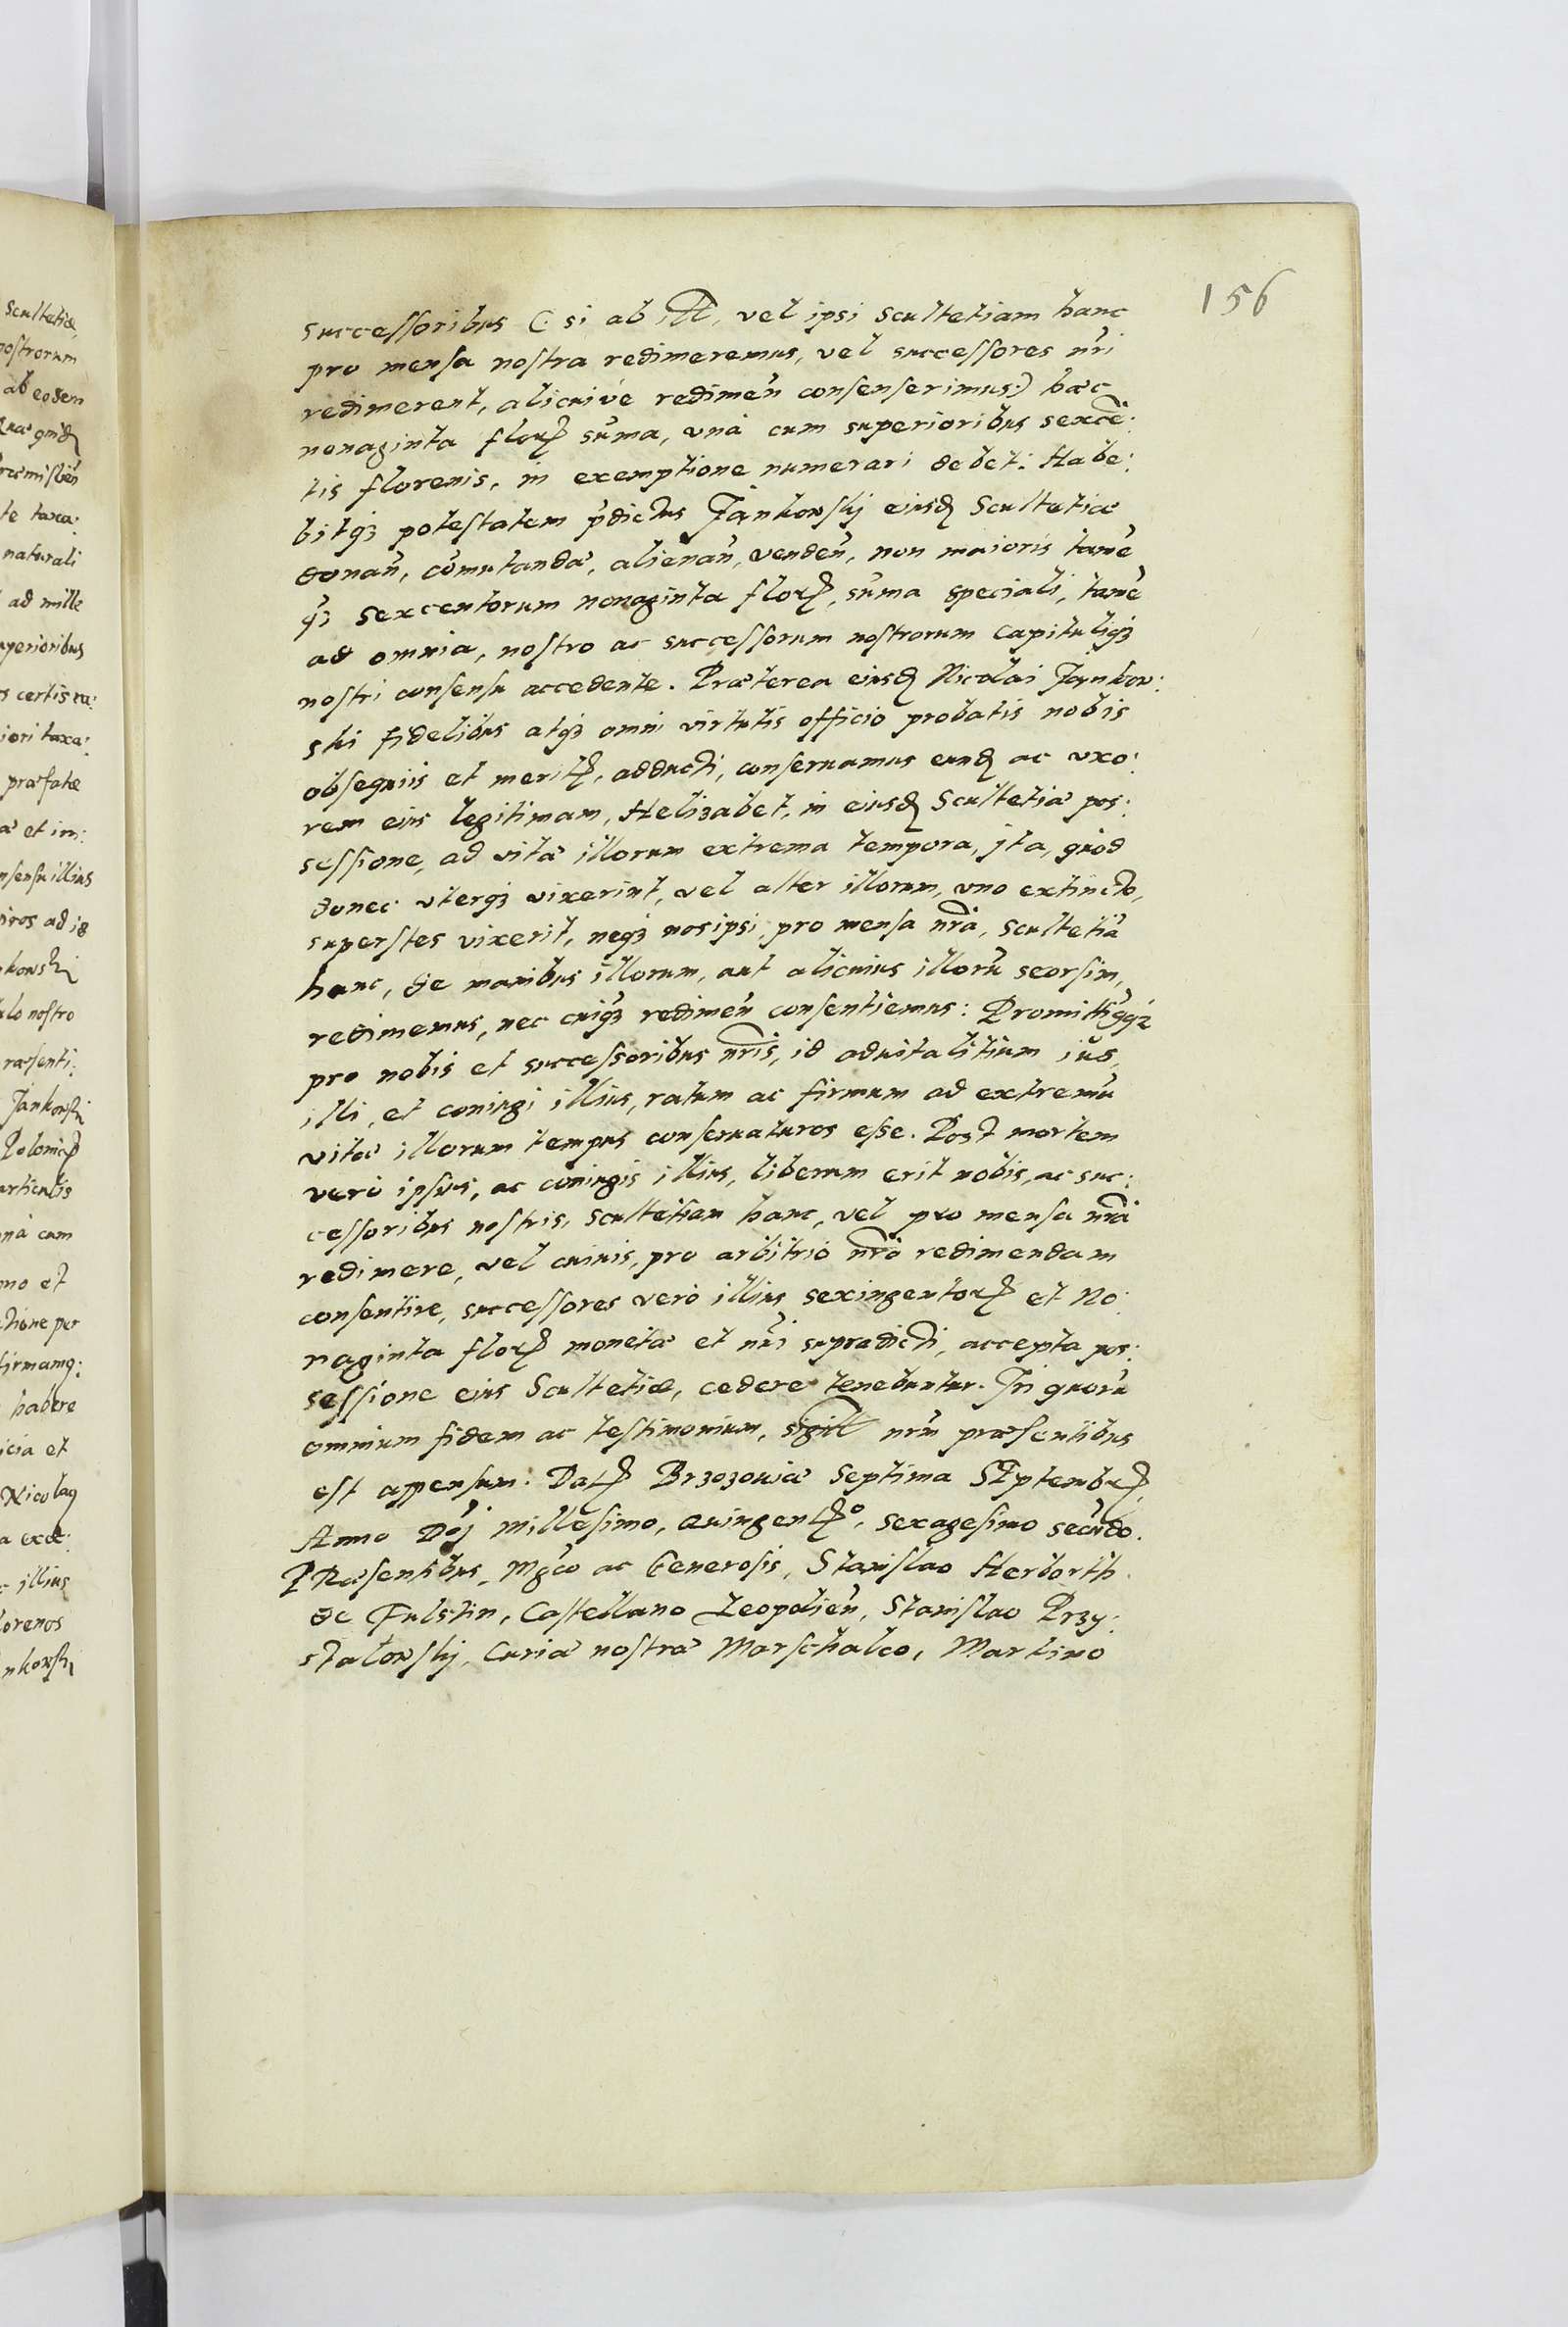 156
successoribus (: si ab ill. vel ipsi Scultetiam hanc
pro mensa nostra redimeremus, vel successores nr̃i
redimerent, alicuivé redimeñ consenserimus:) hæc
nonaginta flor. sum̃a, vnà cum superioribus sexcẽ:
tis florenis, in exemptione numerari debet. Habe:
bitq3 potestatem p̃dictus Jankowskj eiusd. Scultetiæ
donañ, com̃utandæ, alienañ, vendeñ, non maioris tamẽ
q̃3 sexcentorum nonaginta flor., sum̃a speciali, tamẽ
ad omnia, nostro ac successorum nostrorum Capituliq3
nostri consensu accedente. Præterea eiusd. Nicolai Jankow:
ski fidelibus atq3 omni virtutis officio probatis nobis
obsequiis et merit., adducti, conseruamus eund. ac vxo:
rem eius legitimam, Helizabet, in eiusd. Scultetiæ pos:
sessione, ad vitæ illorum extrema tempora, jta, quòd
donec vterq3 vixerint, vel alter illorum, vno extincto,
superstes vixerit, neq3 nos ipsi pro mensa nr̃a, Scultetiã
hanc, de manibus illorum, aut alicuius illorũ seorsim,
redimemus, nec cuiq̃3 redimeñ consentiemus: Promittim̃qq3
pro nobis et successoribus nr̃is, id aduitalitium ius,
illi, et coniugi illius, ratum ac firmum ad extremũ
vitæ illorum tempus conseruaturos esse. Post mortem
verò ipsius, ac coniugis illius, liberum erit nobis, ac suc:
cessoribus nostris, scultetiam hanc, vel pro mensa nr̃a
redimere, vel cuiuis, pro arbitrio nr̃o redimendam
consentire, successores verò illius sexingentor. et No:
naginta flor. monetæ et nũi supradicti, accepta pos:
sessione eius Scultetiæ, cedere tenebuntur. In quorũ
omnium fidem ac testimonium, sigill nr̃m præsentibus
est appensum. Dat. Brzozowiæ Septima SEptembr.
Anno Dñj Millesimo, Quingent.º, sexagesimo secũdo.
PRæsentibus, Mg̃co ac Generosis, Stanislao Herborth
de Fulstin, Castellano Leopolieñ, Stanislao Przy:
stałowskij, Curiæ nostræ Marschalco, Martino